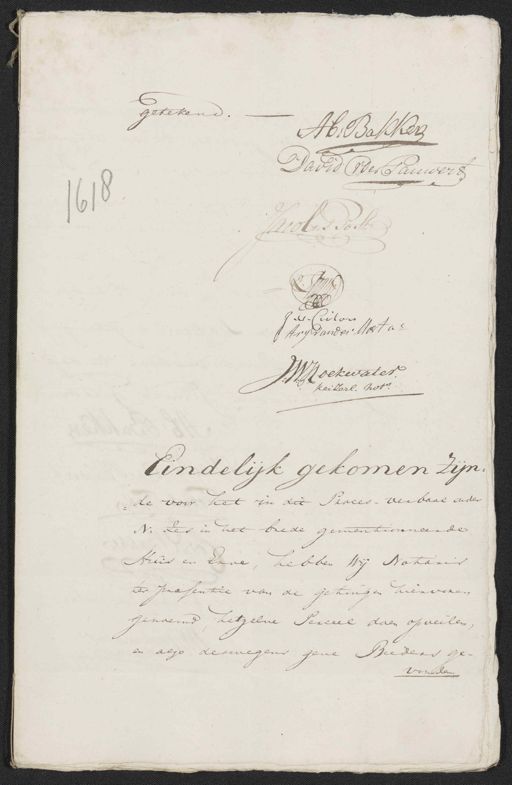 Getekend. —
Ab. Bakker
David
1618
Jacob Post
Ary van der Meer
J.W. Hoekwater
keizerl. Nots.
Eindelijk gekomen Zijn,
de voor het in dit Proces-verbaal onder
N. Zes in het brede gementioneerde
Huis en Erve, hebben Wij Notaris
ter presentie van de getuigen hiervoren
genoemd, hetzelve Perceel doen opveilen,
en alzo deswegens gene Bieders ge-
vonden